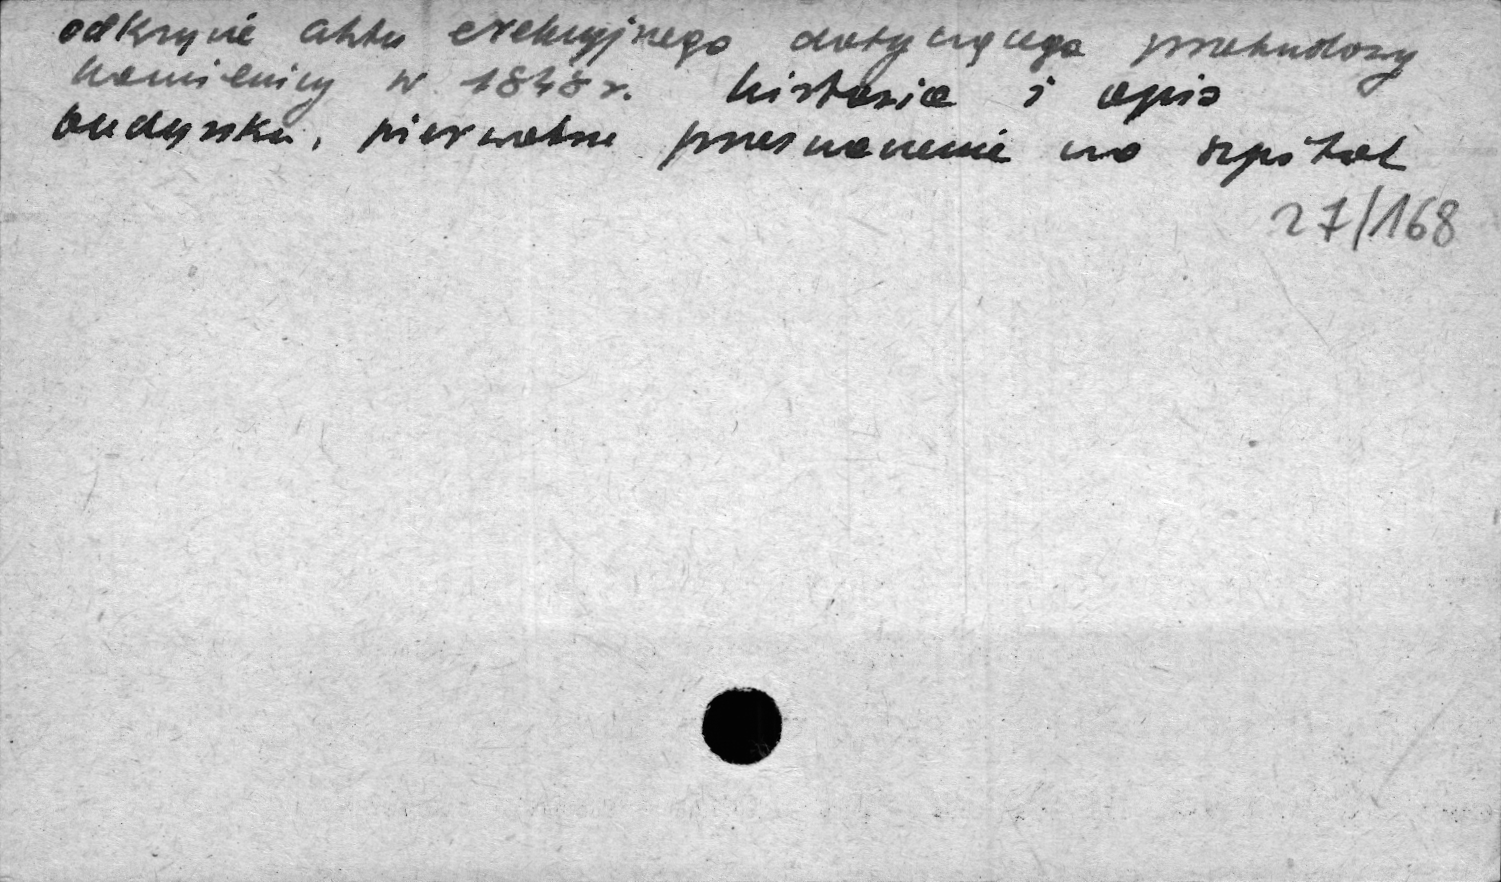 odkrycie aktu erekcyjnego dotyczącego przebudowy
kamienicy w 1848 r. historia i opis
budynku, pierwotne przeznaczenie na szpital
27/168